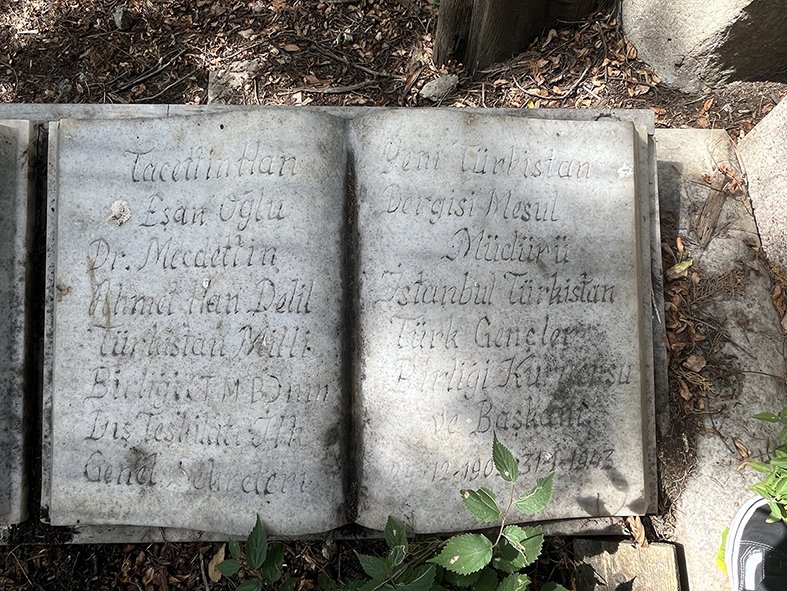 Tacettin Han
Eşan Oğlu
Dr. Mecdettin
Ahmet Han Delil
Türkistan Milli
Birliği (TMB)nin
Dış Teşkilatı İlk
Genel Sekreteri
Yeni Türkistan
Dergisi Mesul
Müdürü
İstanbul Türkistan
Türk Gençler
Birliği Kurucusu
ve Başkanı